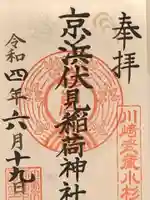 奉拝
川崎受蔵小杉
京浜伏見稲荷神社
令和四年六月十九日